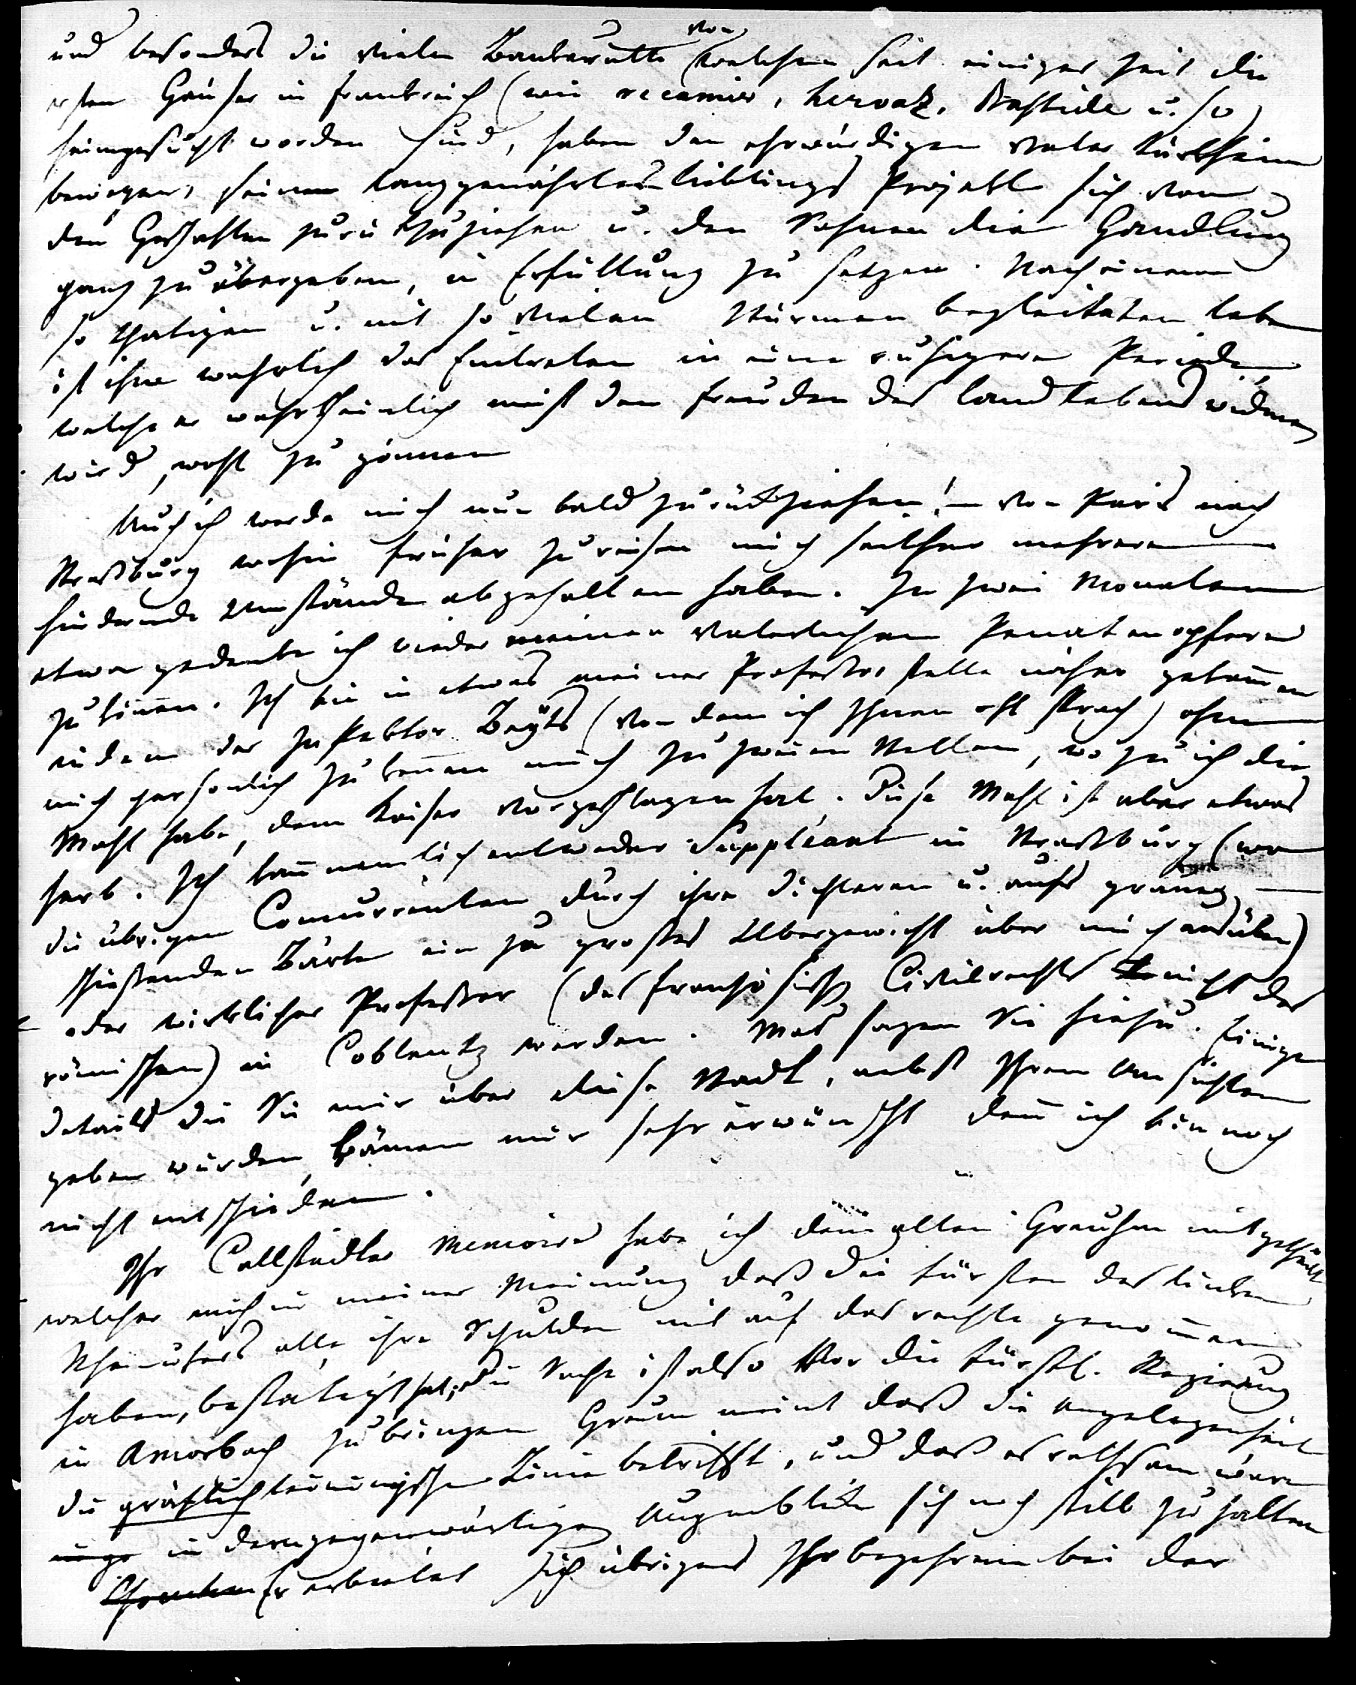 und besonders die vielen Bankerutte von welchen seit einiger Zeit die
ersten Häuser in Frankreich (wie recamier, hervas, Bastide u. so)
heimgesucht worden sind, haben den ehrwürdigen Vater Türkheim
bewogen, seinen langgenährten lieblings Projekt sich von
den Geschäften zurükzuziehen u. den Söhnen die Handlung
ganz zu übergeben, in Erfüllung zu setzen. Nach einem
so thätigen u. mit so vielen Stürmen begleiteten Leben
ist ihm wahrlich das Eintreten in eine ruhigere Periode,
welche er wahrscheinlich meist den Freuden des Landlebens widmen
wird, wohl zu gönnen
Auch ich werde mich nun bald zurükziehen! – von Paris nach
Straßburg wohin früher zu reisen mich seither mehrere
hindernde Umstände abgehalten haben. In zwei Monaten
etwa gedenke ich wieder meinen Väterlichen Penaten opfern
zu können. Ich bin in etwas meiner Professor stelle näher gekommen
indem der Inspektor Beyts (von dem ich Ihnen oft sprach) ohne
mich persönlich zu kennen mich zu zweien Stellen, wozu ich die
Wahl habe, dem Kaiser vorgeschlagen hat. Diese Wahl ist aber etwas
herb. Ich kann nemlich entweder Suppléant in Straßburg (wo
die übrigen Concurrenten durch ihre dichteren u. aufs
schießenden Bärte ein zu großes Übergewicht über mich ausüben)
oder wirklicher Professor (des französisch Civilrechts nicht des
römischen) in Coblentz werden. Was sagen Sie hiezu. Einige
details die Sie mir über diese Stadt, nebst Ihren Ansichten
geben würden, kämen mir sehr erwünscht denn ich bin noch
nicht entschieden.
Ihr Callstadter Memoire habe ich dem alten Greuhm mitgetheilt
welcher mich in meiner Meinung daß die Fürsten des linken
Rheinufers alle ihre Schulden mit auf das rechte genommen
haben, bestätigt hat; die Sache ist also vor die Fürstl. Regierung
in Amorbach zu bringen Greum meint daß die Angelegenheit
die gräflich leiningische Linie betrifft, und daß es rathsam wäre
in dem gegenwärtigen Augenblike sich noch still zu halten
Er erbietet sich übrigens Ihr begehren bei der